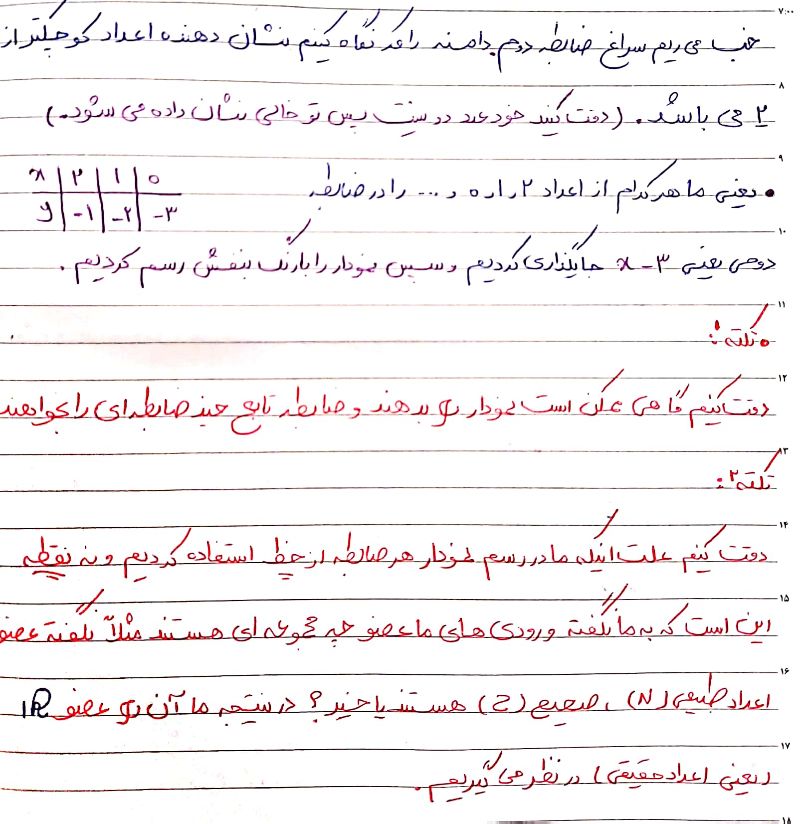 ۷:۰۰
خب می ریم سراغ ضابطه دوم دامنه را که نگاه کنیم نشان دهنده اعداد کوچیکتر از
۸
۲ می باشد. (دقت کنید خود عدد دو نیست پس تو خالی نشان داده می شود.)
۹
• یعنی ما هر کدام از اعداد ۲ ، ۱ ، ۰ و ... را در ضابطه
x | ۲ | ۱ | ۰
y | -۱ | -۲ | -۳
۱۰
دومی یعنی x-۳ جایگذاری کردیم و سپس نمودار را با رنگ بنفش رسم کردیم.
۱۱
• نکته ۱:
۱۲
دقت کنیم گاهی ممکن است نمودار رو بدهند و ضابطه تابع چند ضابطه ای را بخواهند
۱۳
نکته ۲:
۱۴
دقت کنیم علت اینکه ما در رسم نمودار هر ضابطه از خط استفاده کردیم و نه نقطه
۱۵
این است که به ما نگفته ورودی های ما عضو چه مجموعه ای هستند مثلاً نگفته عضو
۱۶
اعداد طبیعی (N) ، صحیح (Z) هستند یا خیر؟ در نتیجه ما آن رو عضو IR
۱۷
(یعنی اعداد حقیقی) در نظر می گیریم.
۱۸